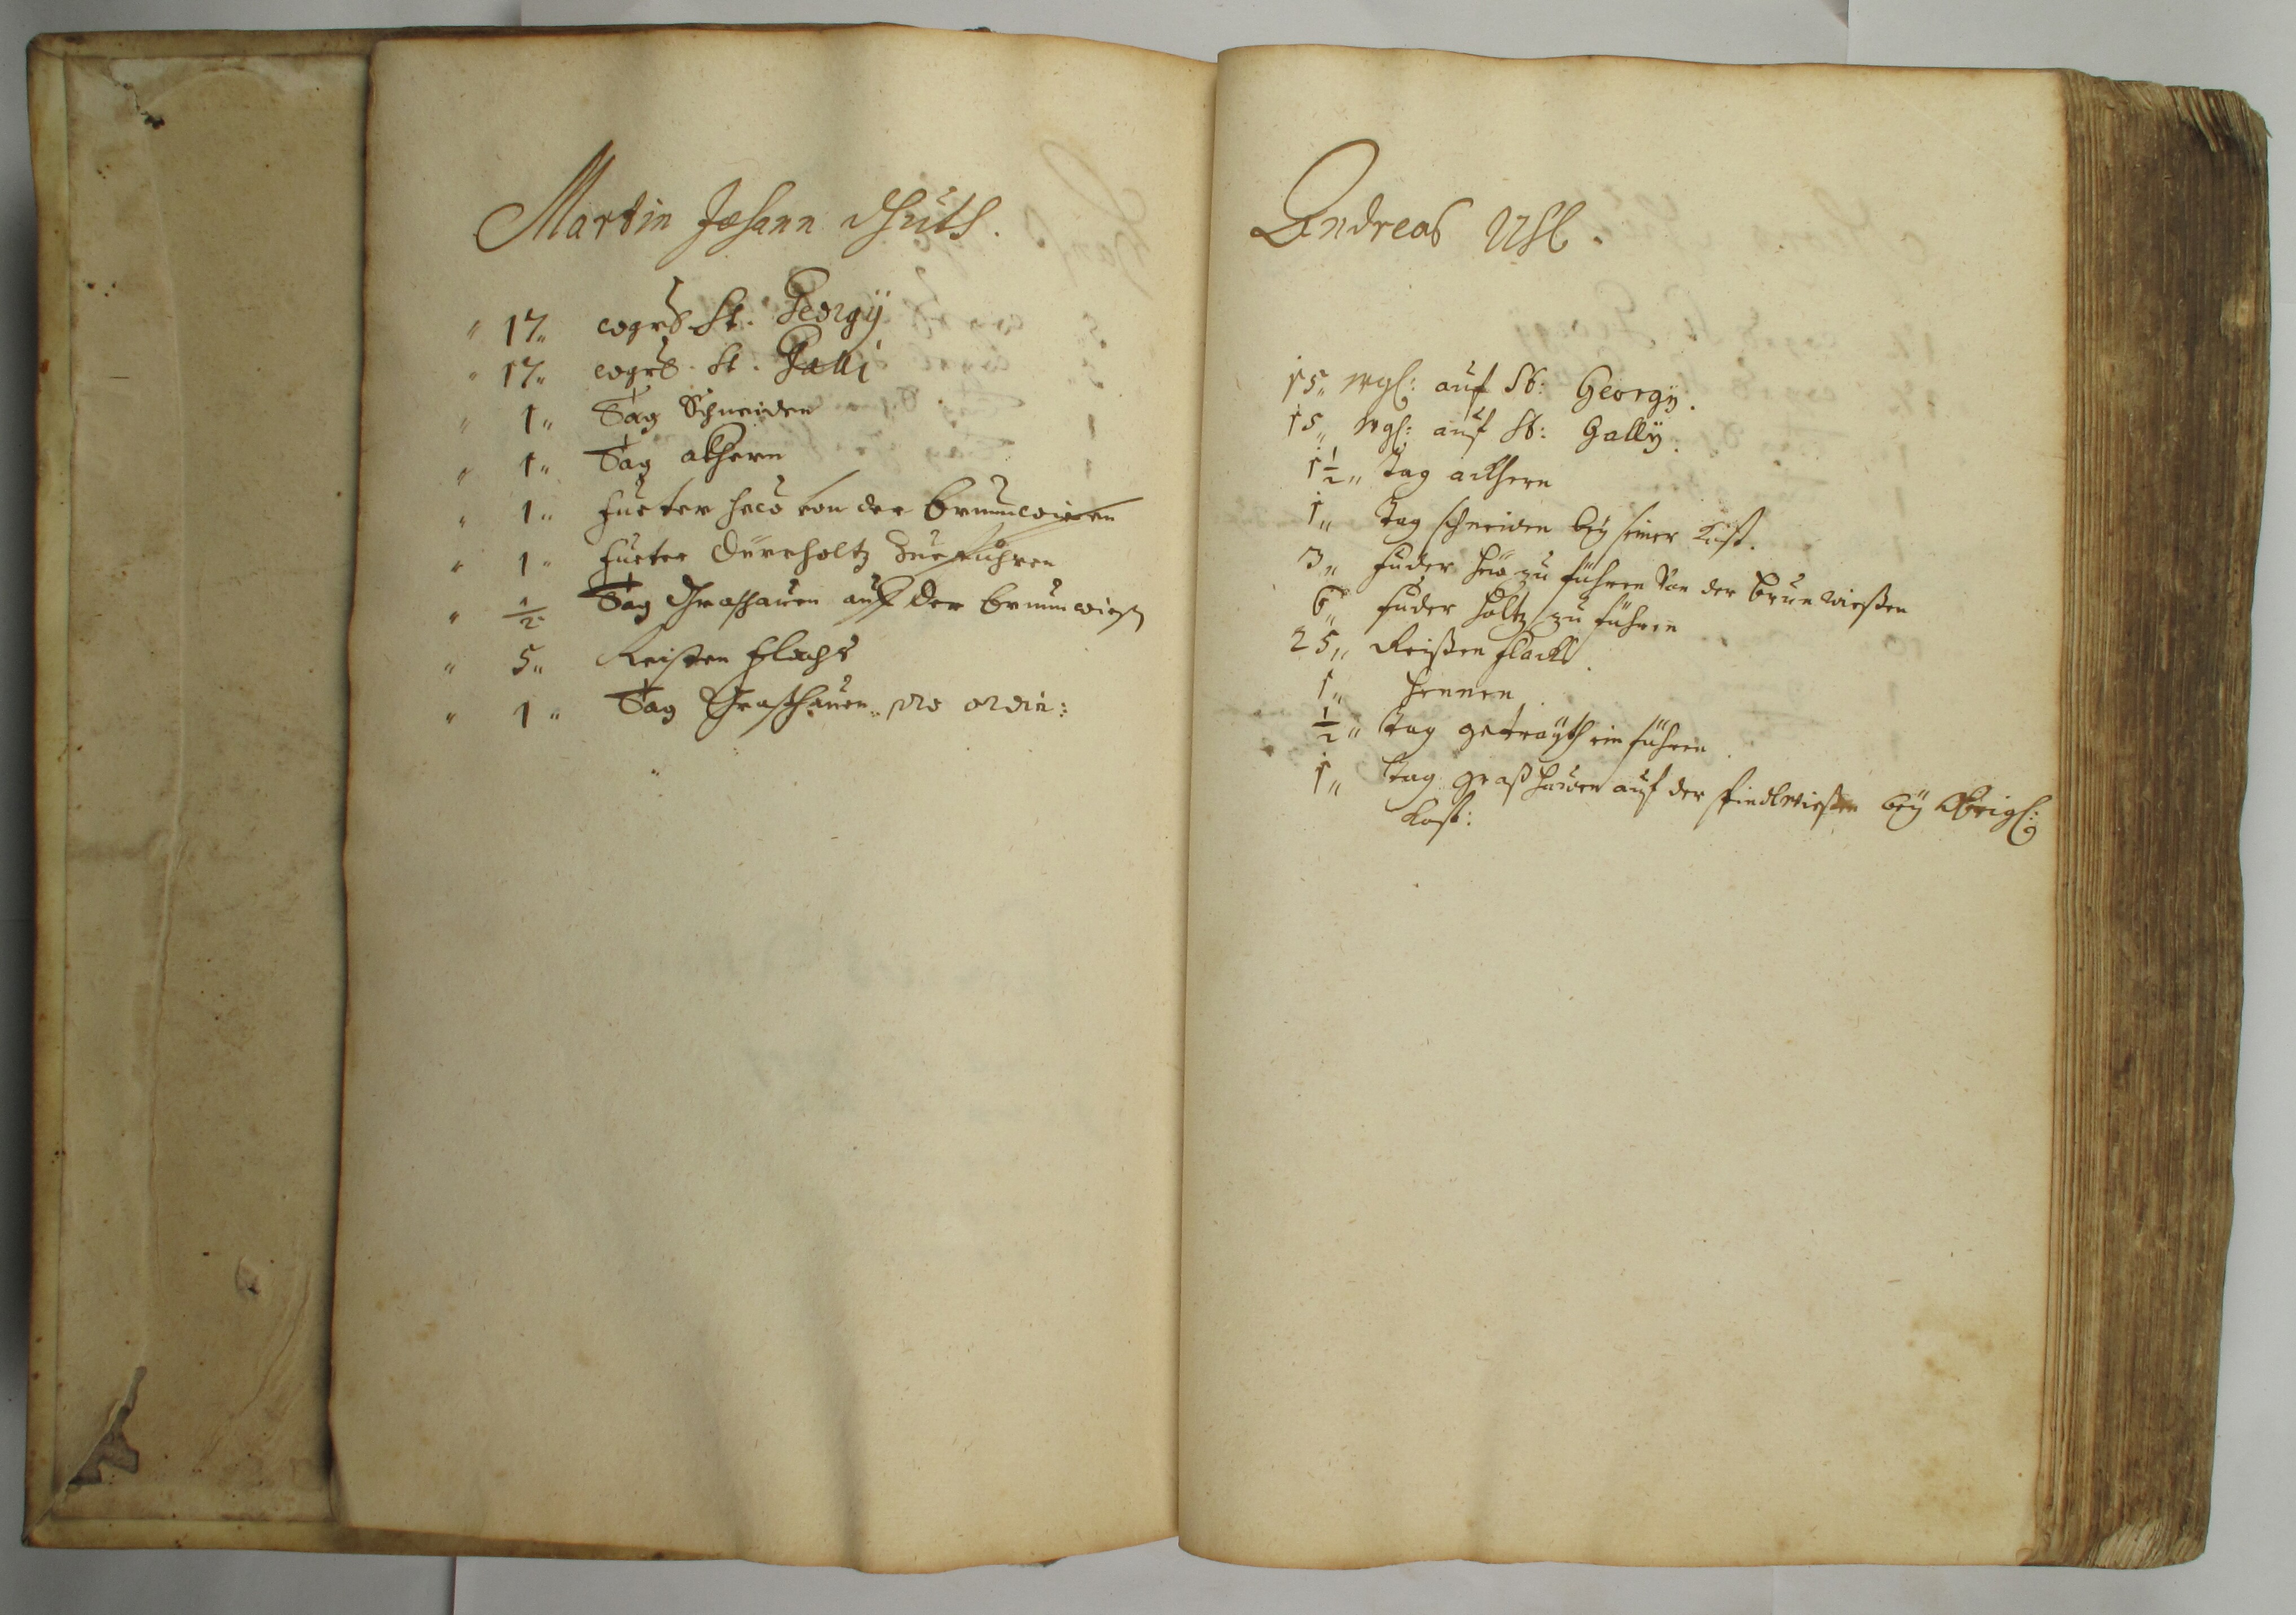 Martin Johann Schuts.
" 17" wgrs. St. Georgÿ
" 17" wgrs. St. Galli
" 1" Tag Schneiden
" 1" Tag akhern
" 1" fueter hew von der brunnwiesen
" 1" fueter dürrholtz zue führen
" 1/2" Tag Grashauen auf der brunnwiesz
" 5" Reisten flachs
" 1" Tag Grashauen pro ordin:
Andreas Uhl.
15" wgl: auf St: Georgÿ.
15" wgl: auf St: Gallÿ.
1 1/2" tag ackhern
1" tag schneiden beÿ seiner Kost.
3" fuder heu zu führen Von der brun wießen
6" fuder holtz zu führen
25" Reißen flacks
1" hennen
1/2" tag getraÿth ein führen
1" tag graß hauen auf der beÿ Obrigl:
Kost: